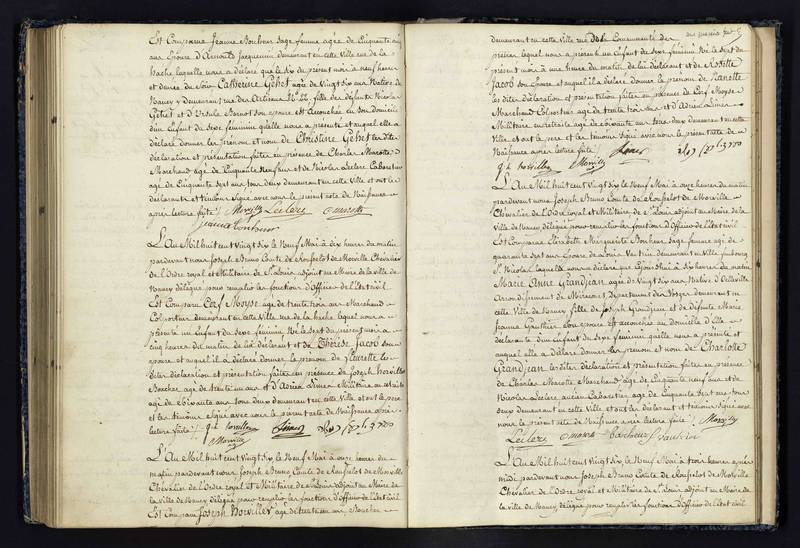 Est Comparue Jeanne Bonheur Sage femme agée de Cinquante
ans Epouse d'Arnould Jacquemin demeurant en cette Ville rue de la
hache laquelle nous a déclaré que le Six du présent mois à neuf heures
et demie du Soir Catherine Gehet agée de Vingt Six ans Native de
Nancy y demeurant rue des Artisans N° 22, fille des défunts Nicolas
Gehet et d'Ursule Bernot Son epouse est accouchée en Son domicile
d'un Enfant du Sexe féminin qu'elle nous a présenté et auquel elle a
déclaré donner les prénom et nom de Christine Gehet les dites
déclaration et présentation faites en présence de Charles Marotte
Marchand agé de Cinquante Neuf ans et de Nicolas Leclerc Cabaretier
agé de Cinquante Sept ans tous deux demeurant en cette Ville et ont les
déclarante et témoins Signé avec nous le présent acte de Naissance
après lecture faite Morville Leclerc Marotte
Jeanne Bonheur
L'An Mil huit cent Vingt Six le Neuf Mai à dix heures du matin
pardevant nous Joseph Bruno Comte de Rosselot de Morville Chevalier
de l'Ordre royal et Militaire de St Louis, adjoint au Maire de la Ville de
Nancy délégué pour remplir les fonctions d'Officier de l'Etat civil
Est Comparu Cerf Moyse agé de trente trois ans Marchand
Colporteur demeurant en cette Ville rue de la hache lequel nous a
présenté un Enfant du Sexe féminin Né le Sept du présent mois à
cinq heures du matin de lui déclarant et de Thérèse Jacob Son
epouse et auquel il a déclaré donner le prénom de fleurette les
dites déclaration et présentation faites en présence de Joseph horviller
Boucher agé de trente un ans et d'Adrien Militaire en retraite
agé de Soixante ans tous deux demeurant en cette Ville et ont le père
et les témoins Signé avec nous le présent acte de Naissance après
lecture faite
Morville
L'An Mil huit cent Vingt Six le Neuf Mai à onze heures du
matin pardevant nous Joseph Bruno Comte de Rosselot de Morville
Chevalier de l'Ordre royal et Militaire de St Louis adjoint au Maire de
la Ville de Nancy délégué pour remplir les fonctions d'Officier de l'Etat civil
Est Comparu Joseph Horviller agé de trente un ans Boucher
demeurant en cette Ville rue de
présent lequel nous a présenté un Enfant du Sexe féminin Né le Sept du
présent mois à une heure du matin de lui déclarant et de Rosette
Jacob Son Epouse et auquel il a déclaré donner le prénom de Nanette
les dites déclaration et présentation faites en présence de Cerf Moyse
Marchand Colporteur agé de trente trois ans et d'Adrien
Militaire en retraite agé de Soixante ans tous deux demeurant en cette
Ville et ont le père et les témoins Signé avec nous le présent acte de
Naissance après lecture faite
Morville
L'An Mil huit cent Vingt Six le Neuf Mai à onze heures du matin
pardevant nous Joseph Bruno Comte de Rosselot de Morville
Chevalier de l'Ordre royal et Militaire de St Louis adjoint au Maire de la
Ville de Nancy délégué pour remplir les fonctions d'Officier de l'Etat civil
Est Comparue Elisabeth Marguerite Bonheur Sage femme agée de
quarante Sept ans Epouse de Louis Vautrin demeurant en Ville faubourg
St Nicolas laquelle nous a déclaré que aujourd'hui à Six heures du matin
Marie Anne Grandjean agée de Vingt Six ans Native d'Oelleville
Arrondissement de Mirecourt Département des Vosges demeurant en
cette Ville de Nancy, fille de Joseph Grandjean et de défunte Marie
Jeanne Gauthier Son epouse est accouchée au domicile d'Elle
déclarante d'un Enfant du Sexe féminin qu'elle nous a présenté et
auquel elle a déclaré donner les prénom et nom de Charlotte
Grandjean les dites déclaration et présentation faites en présence
de Charles Marotte Marchand agé de Cinquante Neuf ans et de
Nicolas Leclerc ancien Cabaretier agé de Cinquante Sept ans tous
deux demeurant en cette Ville et ont les déclarante et témoins Signé avec
nous le présent acte de Naissance après lecture faite Morville
Leclerc Marotte Bonheur Vautrin
L'An Mil huit cent Vingt Six le Neuf Mai à trois heures après
midi pardevant nous Joseph Bruno Comte de Rosselot de Morville
Chevalier de l'Ordre royal et Militaire de St Louis adjoint au Maire de
la Ville de Nancy délégué pour remplir les fonctions d'Officier de l'Etat civil